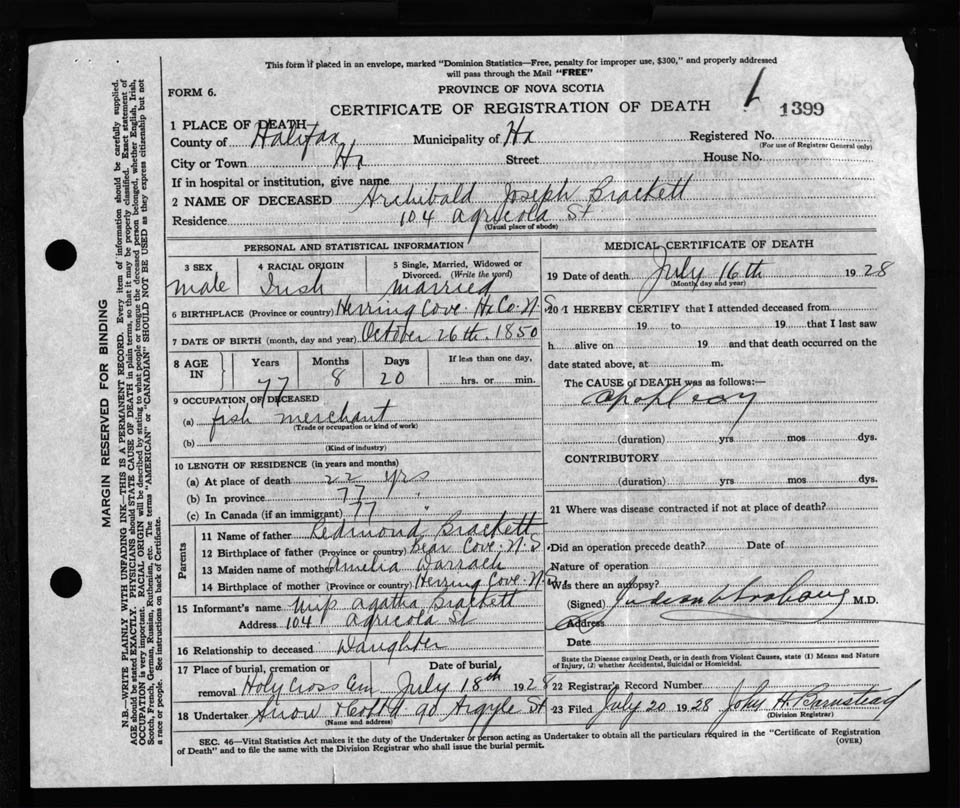 This form if placed in an envelope, marked "Dominion Statistics—Free, penalty for improper use, $300," and properly addressed
will pass through the Mail "FREE"
FORM 6.
PROVINCE OF NOVA SCOTIA
CERTIFICATE OF REGISTRATION OF DEATH
1399
1 PLACE OF DEATH
County of Halifax Municipality of Hx Registered No.
(For use of Registrar General only)
City or Town Hx Street House No.
If in hospital or institution, give name
2 NAME OF DECEASED Archibald Joseph Brackett
Residence 104 Agricola St
(Usual place of abode)
PERSONAL AND STATISTICAL INFORMATION
3 SEX 4 RACIAL ORIGIN 5 Single, Married, Widowed or
Divorced. (Write the word)
Male Irish Married
6 BIRTHPLACE (Province or country) Herring Cove Hx Co. N S
7 DATE OF BIRTH (month, day and year) October 26th. 1850
8 AGE IN Years Months Days If less than one day,
77 8 20 hrs. or min.
9 OCCUPATION OF DECEASED
(a) fish merchant
(Trade or occupation or kind of work)
(b)
(Kind of industry)
10 LENGTH OF RESIDENCE (in years and months)
(a) At place of death 22 yrs
(b) In province 77 "
(c) In Canada (if an immigrant) 77
Parents
11 Name of father Redmond Brackett
12 Birthplace of father (Province or country) Bear Cove. N. S
13 Maiden name of mother Amelia Darrach
14 Birthplace of mother (Province or country) Herring Cove. N S
15 Informant's name Miss Agatha Brackett
Address 104 Agricola St
16 Relationship to deceased Daughter
17 Place of burial, cremation or Date of burial
removal Holy Cross Cem July 18th 1928
18 Undertaker Snow & Co Ltd 90 Argyle St
(Name and address)
MEDICAL CERTIFICATE OF DEATH
19 Date of death July 16th 1928
(Month, day and year)
20 I HEREBY CERTIFY that I attended deceased from
19 to 19 that I last saw
h alive on 19 and that death occurred on the
date stated above, at m.
The CAUSE of DEATH was as follows:—
apoplexy
(duration) yrs mos dys.
CONTRIBUTORY
(duration) yrs. mos. dys.
21 Where was disease contracted if not at place of death?
Did an operation precede death? Date of
Nature of operation
Was there an autopsy?
(Signed) M.D.
Address
Date
State the Disease causing Death, or in death from Violent Causes, state (1) Means and Nature
of Injury, (2) whether Accidental, Suicidal or Homicidal.
22 Registrar's Record Number
23 Filed July 20 1928 John H. Barnstead
(Division Registrar)
SEC. 46—Vital Statistics Act makes it the duty of the Undertaker or person acting as Undertaker to obtain all the particulars required in the "Certificate of Registration
of Death" and to file the same with the Division Registrar who shall issue the burial permit.
(OVER)
MARGIN RESERVED FOR BINDING
N.B.—WRITE PLAINLY WITH UNFADING INK—THIS IS A PERMANENT RECORD. Every item of information should be carefully supplied.
AGE should be stated EXACTLY. PHYSICIANS should STATE CAUSE OF DEATH in plain terms, so that it may be properly classified. Exact statement of
OCCUPATION is very important. RACIAL ORIGIN will be described by stating to what people or tongue the deceased person belonged, whether English, Irish,
Scotch, French, German, Russian, Ruthenian, etc. The terms "AMERICAN" or "CANADIAN" SHOULD NOT BE USED as they express citizenship but not
a race or people. See instructions on back of Certificate.